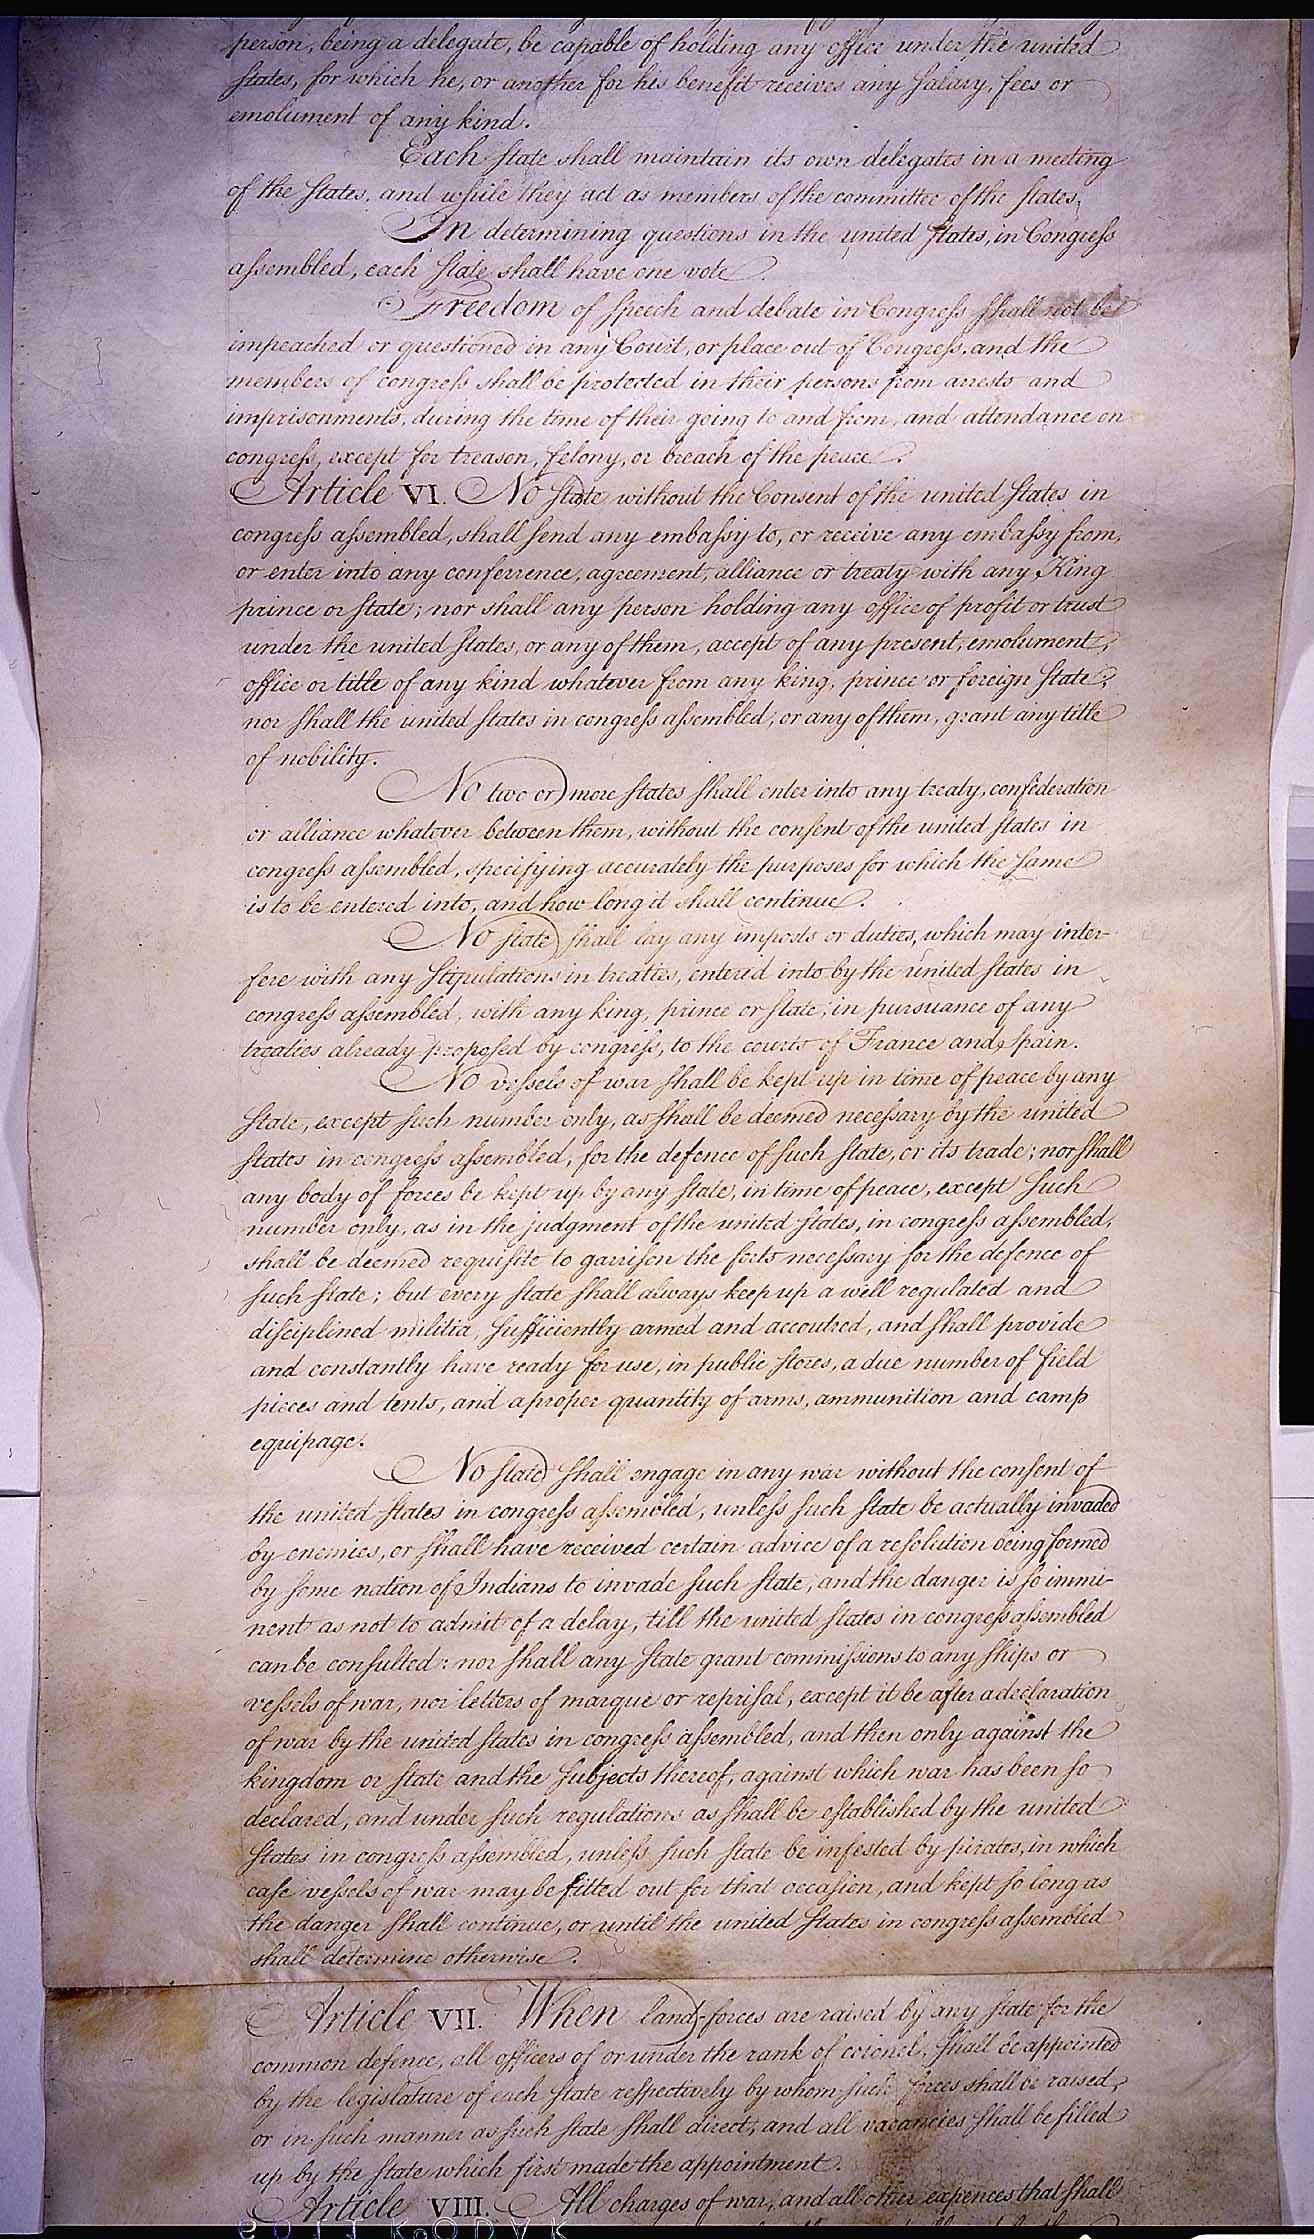 person, being a delegate, be capable of holding any office under the united
States, for which he, or another for his benefit receives any salary, fees or
emolument of any kind.
Each state shall maintain its own delegates in a meeting
of the states, and while they act as members of the committee of the states.
In determining questions in the united states, in Congress
assembled, each state shall have one vote.
Freedom of speech and debate in Congress shall not be
impeached or questioned in any Court, or place out of Congress, and the
members of congress shall be protected in their persons from arrests and
imprisonments, during the time of their going to and from, and attendance on
congress, except for treason, felony, or breach of the peace.
Article VI. No State without the Consent of the united States in
congress assembled, shall send any embassy to, or receive any embassy from,
or enter into any conferrence, agreement, alliance or treaty with any King
prince or state; nor shall any person holding any office of profit or trust
under the united states, or any of them, accept of any present, emolument,
office or title of any kind whatever from any king, prince or foreign state;
nor shall the united states in congress assembled, or any of them, grant any title
of nobility.
No two or more states shall enter into any treaty, confederation
or alliance whatever between them, without the consent of the united states in
congress assembled, specifying accurately the purposes for which the same
is to be entered into, and how long it shall continue.
No state shall lay any imposts or duties, which may inter-
fere with any stipulations in treaties, entered into by the united states in
congress assembled, with any king, prince or state, in pursuance of any
treaties already proposed by congress, to the courts of France and Spain.
No vessels of war shall be kept up in time of peace by any
state, except such number only, as shall be deemed necessary by the united
states in congress assembled, for the defence of such state, or its trade; nor shall
any body of forces be kept up by any state, in time of peace, except such
number only, as in the judgment of the united states, in congress assembled,
shall be deemed requisite to garrison the forts necessary for the defence of
such state; but every state shall always keep up a well regulated and
disciplined militia, sufficiently armed and accoutred, and shall provide
and constantly have ready for use, in public stores, a due number of field
pieces and tents, and a proper quantity of arms, ammunition and camp
equipage.
No state shall engage in any war without the consent of
the united states in congress assembled, unless such state be actually invaded
by enemies, or shall have received certain advice of a resolution being formed
by some nation of Indians to invade such state, and the danger is so immi-
nent as not to admit of a delay, till the united states in congress assembled
can be consulted: nor shall any state grant commissions to any ships or
vessels of war, nor letters of marque or reprisal, except it be after a declaration
of war by the united states in congress assembled, and then only against the
kingdom or state and the subjects thereof, against which war has been so
declared, and under such regulations as shall be established by the united
states in congress assembled, unless such state be infested by pirates, in which
case vessels of war may be fitted out for that occasion, and kept so long as
the danger shall continue, or until the united states in congress assembled
shall determine otherwise.
Article VII. When land-forces are raised by any state for the
common defence, all officers of or under the rank of colonel, shall be appointed
by the legislature of each state respectively by whom such forces shall be raised,
or in such manner as such state shall direct, and all vacancies shall be filled
up by the state which first made the appointment.
Article VIII. All charges of war, and all other expences that shall